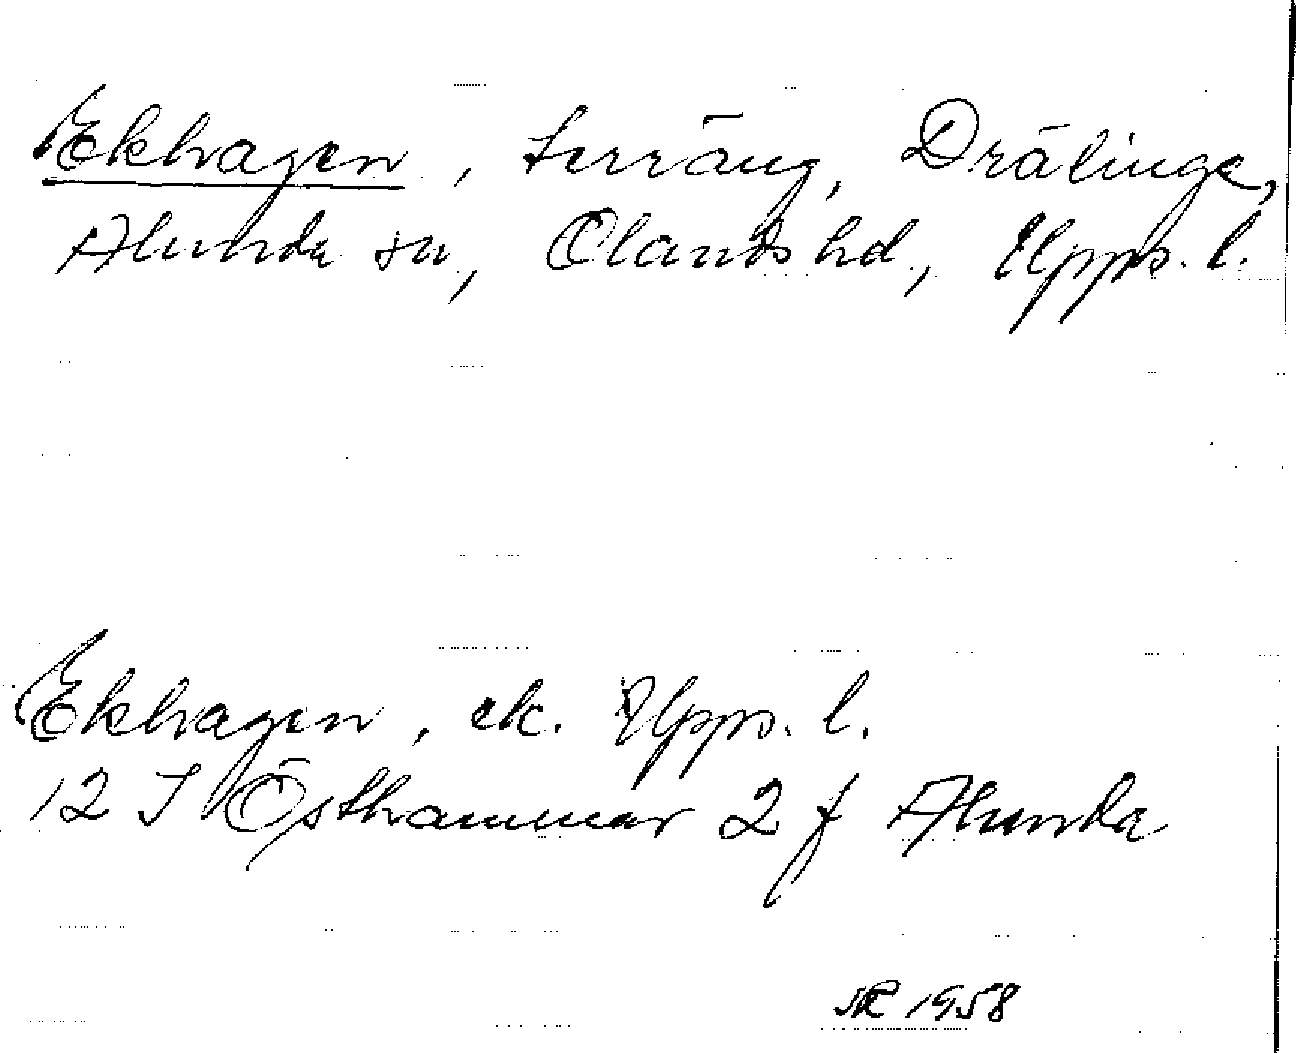 Ekhagen, terräng, Drälinge,
Alunda sn, Olands hd, Upps. l.
Ekhagen, ek. Upps. l.
12 I Östhammar 2 f Alunda
1958